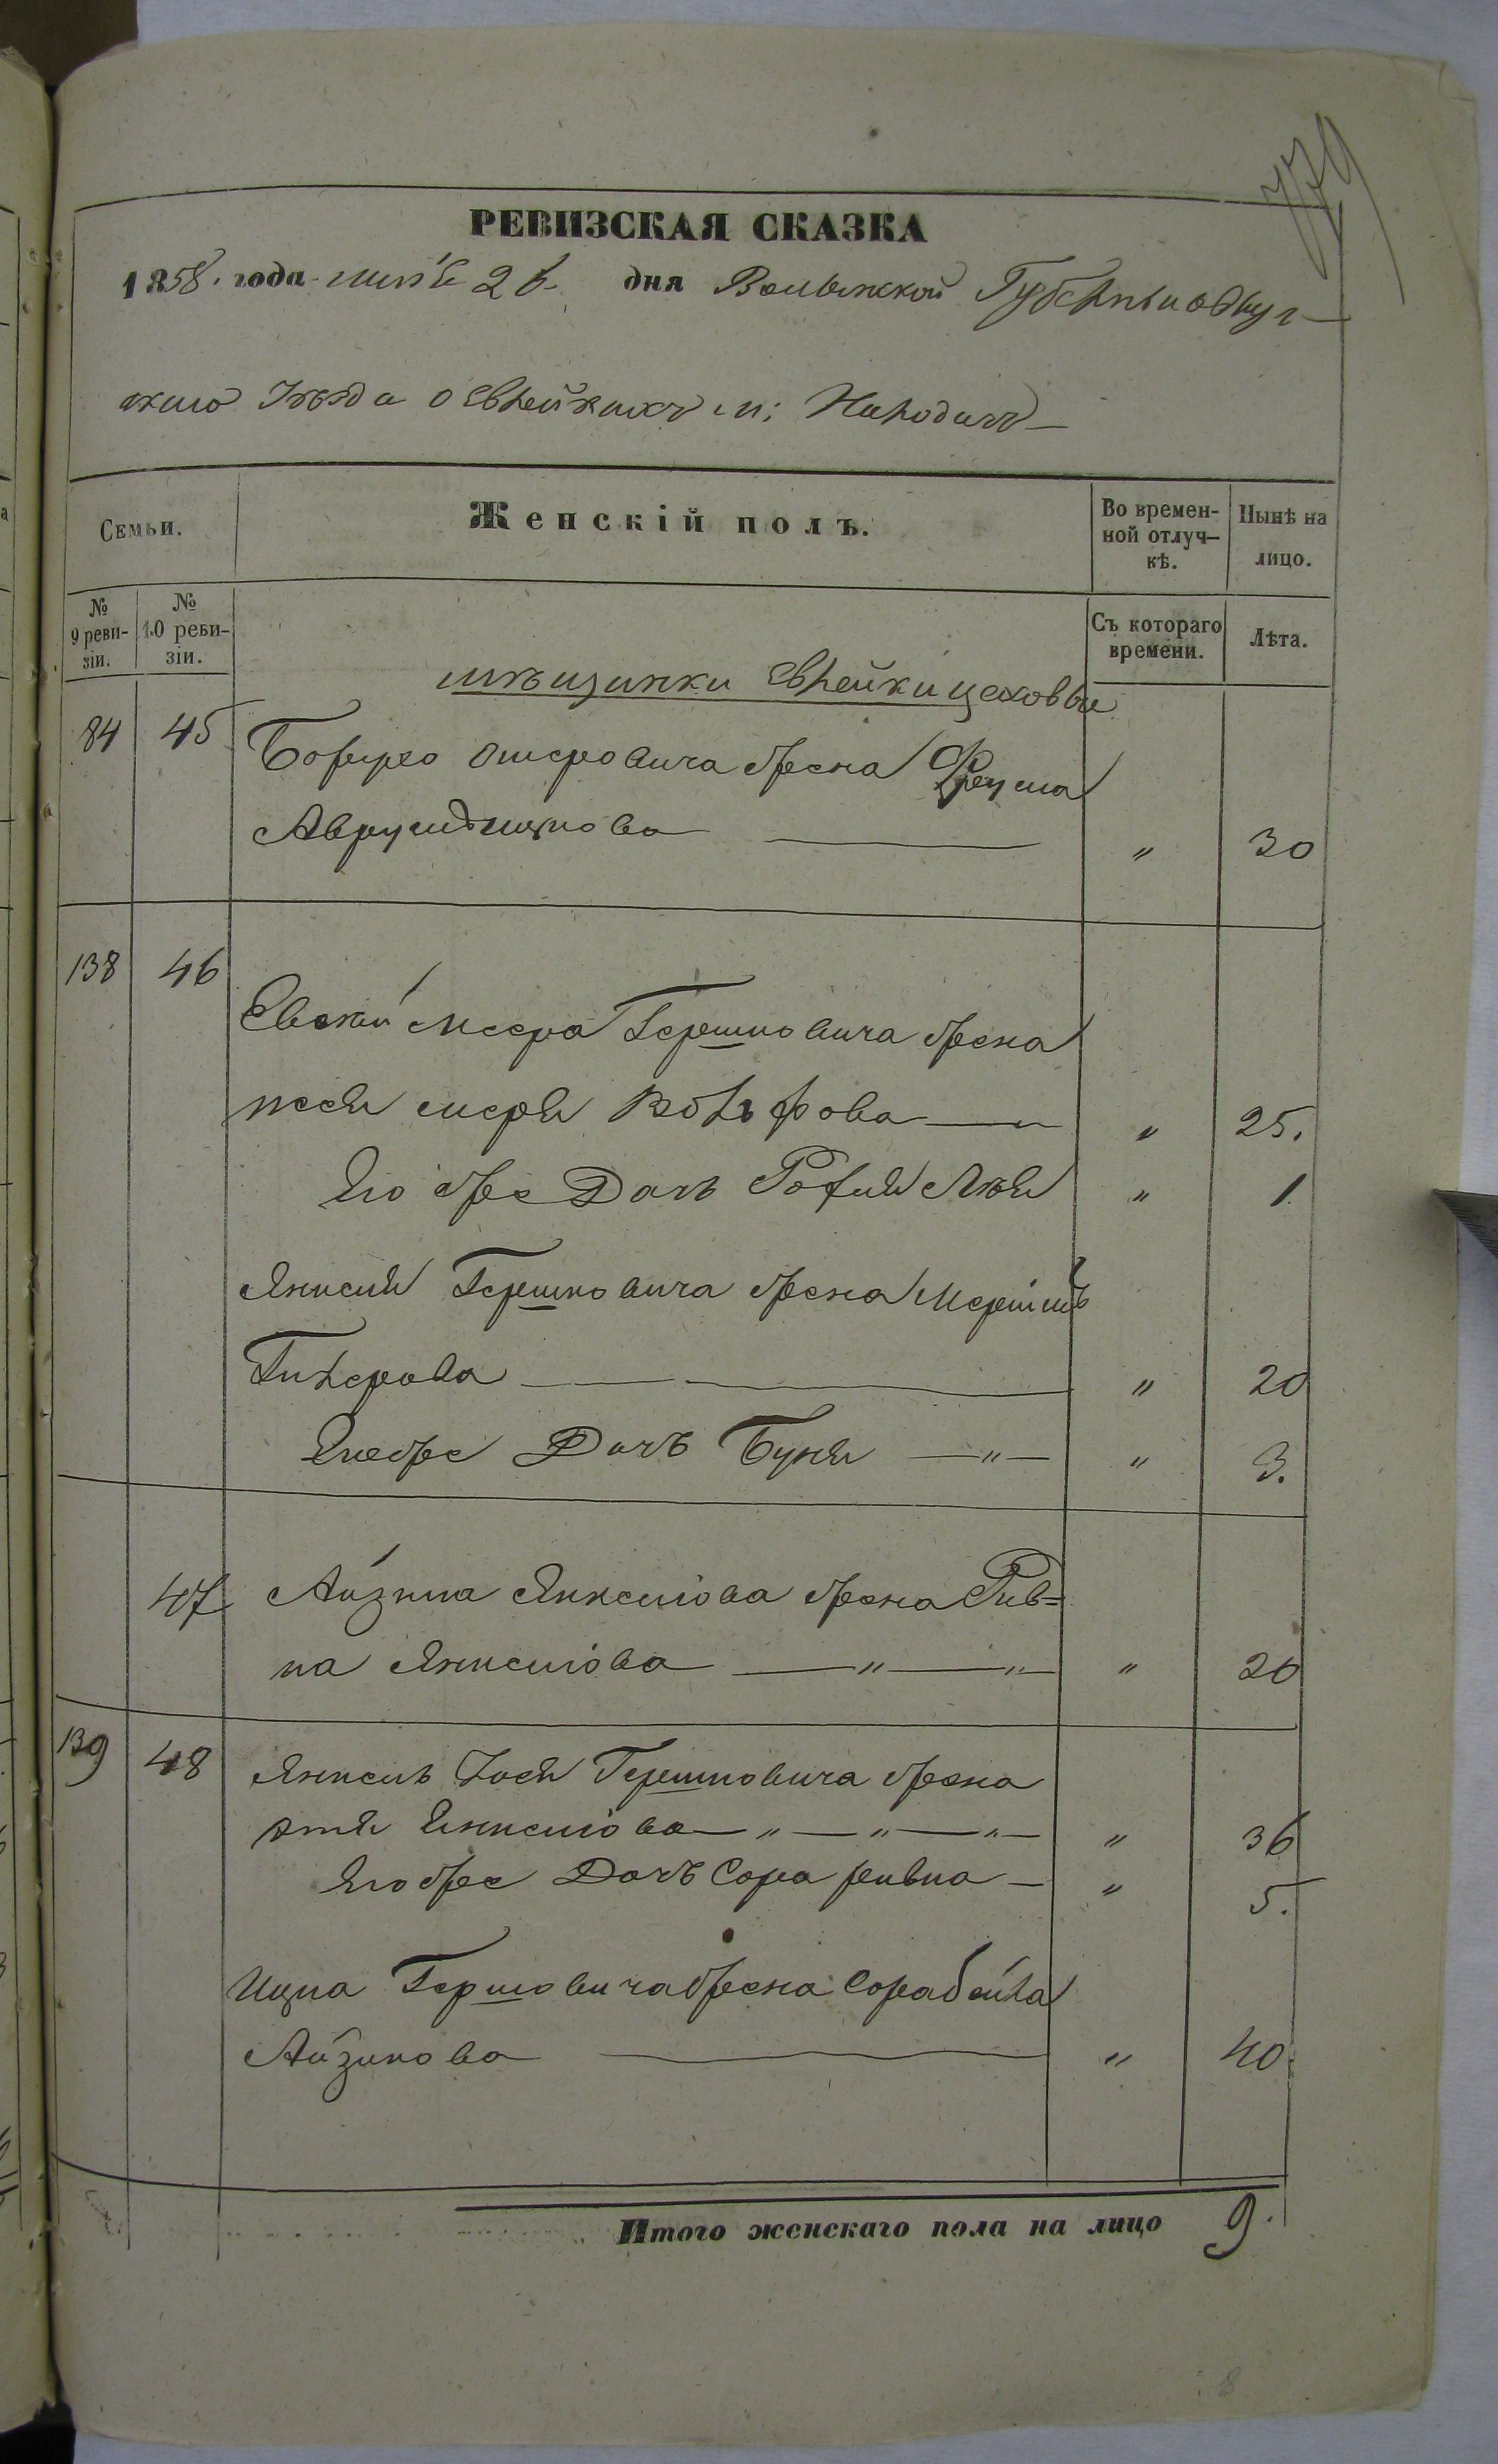 779
РЕВИЗСКАЯ СКАЗКА
1858. года маія 26 дня Волынской Губерніи овруч-
скаго Уѣзда о евреѣйкахъ м: Народичъ
Семьи.
Женскій полъ.
Во времен-
ной отлуч-
кѣ.
Нынѣ на
лицо.
№
9 реви-
зіи.
№
10 реви-
зіи.
Съ котораго
времени.
Лѣта.
мѣщанки еврейки цеховые
84 45 Боруха Ошеровича жена Фрума
Аврумъ Ицкова " 30
138 46
Евсей Меера Гершковича жена
песя мера Вольфова " 25.
Его же Дочь Рохля Лея " 1
Янкеля Гершковича жена
Гилерова " 20
Его же Дочь Буня " " 3.
47 Айзика Янкелiова жена Рив=
ка Янкелiова " " " 20
139 48 Янкель Іося Гершковича жена
этя Янкелiова " " " " 36
Его же Дочь Сора ривка " 5.
Ицка Гершовича жена Сора бейла
Айзикова " 40.
Итого женскаго пола на лицо 9.